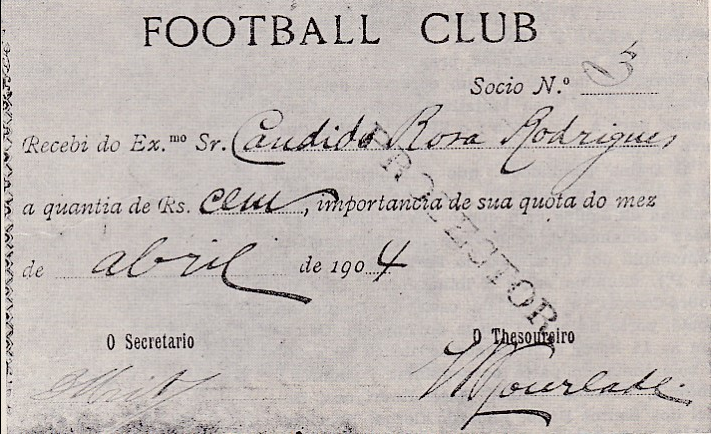 FOOTBALL CLUB
Socio N.º 3
Recebi do Ex.mo Sr. Candido Rosa Rodrigues
a quantia de Rs. cem, importancia de sua quota do mez
de abril de 1904
PROTECTOR
O Secretario O Thesoureiro